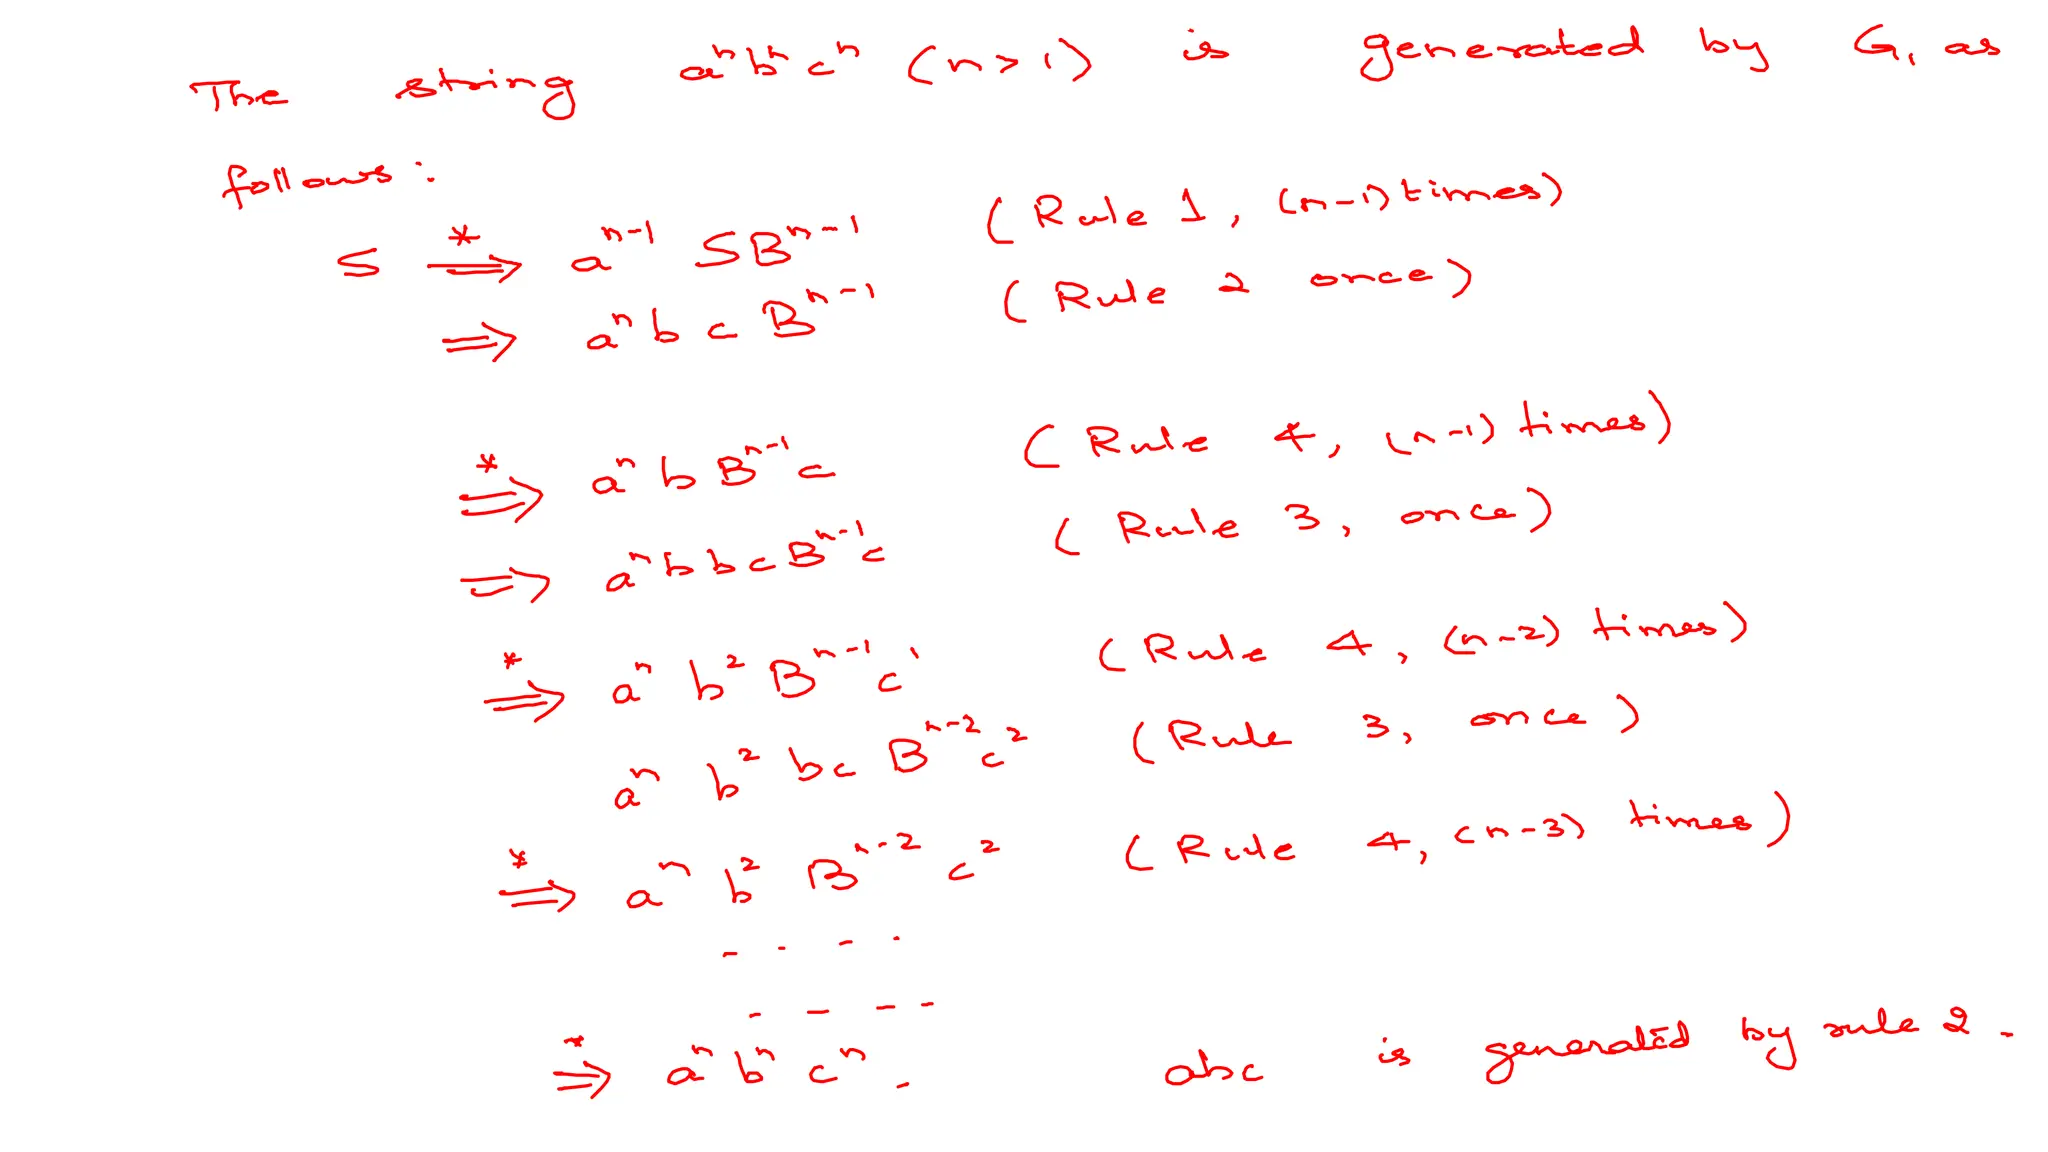 The string aⁿbⁿcⁿ (n > 1) is generated by G₁ as
follows :
S ⇒* aⁿ⁻¹ S Bⁿ⁻¹ (Rule 1, (n-1) times)
⇒ aⁿ b c Bⁿ⁻¹ (Rule 2 once)
⇒* aⁿ b Bⁿ⁻¹ c (Rule 4, (n-1) times)
⇒ aⁿ b b c Bⁿ⁻¹ c (Rule 3, once)
⇒* aⁿ b² Bⁿ⁻¹ c¹ (Rule 4, (n-2) times)
aⁿ b² bc Bⁿ⁻² c² (Rule 3, once)
⇒* aⁿ b² Bⁿ⁻² c² (Rule 4, (n-3) times)
- . - .
- - - -
⇒* aⁿ bⁿ cⁿ . abc is generated by rule 2.